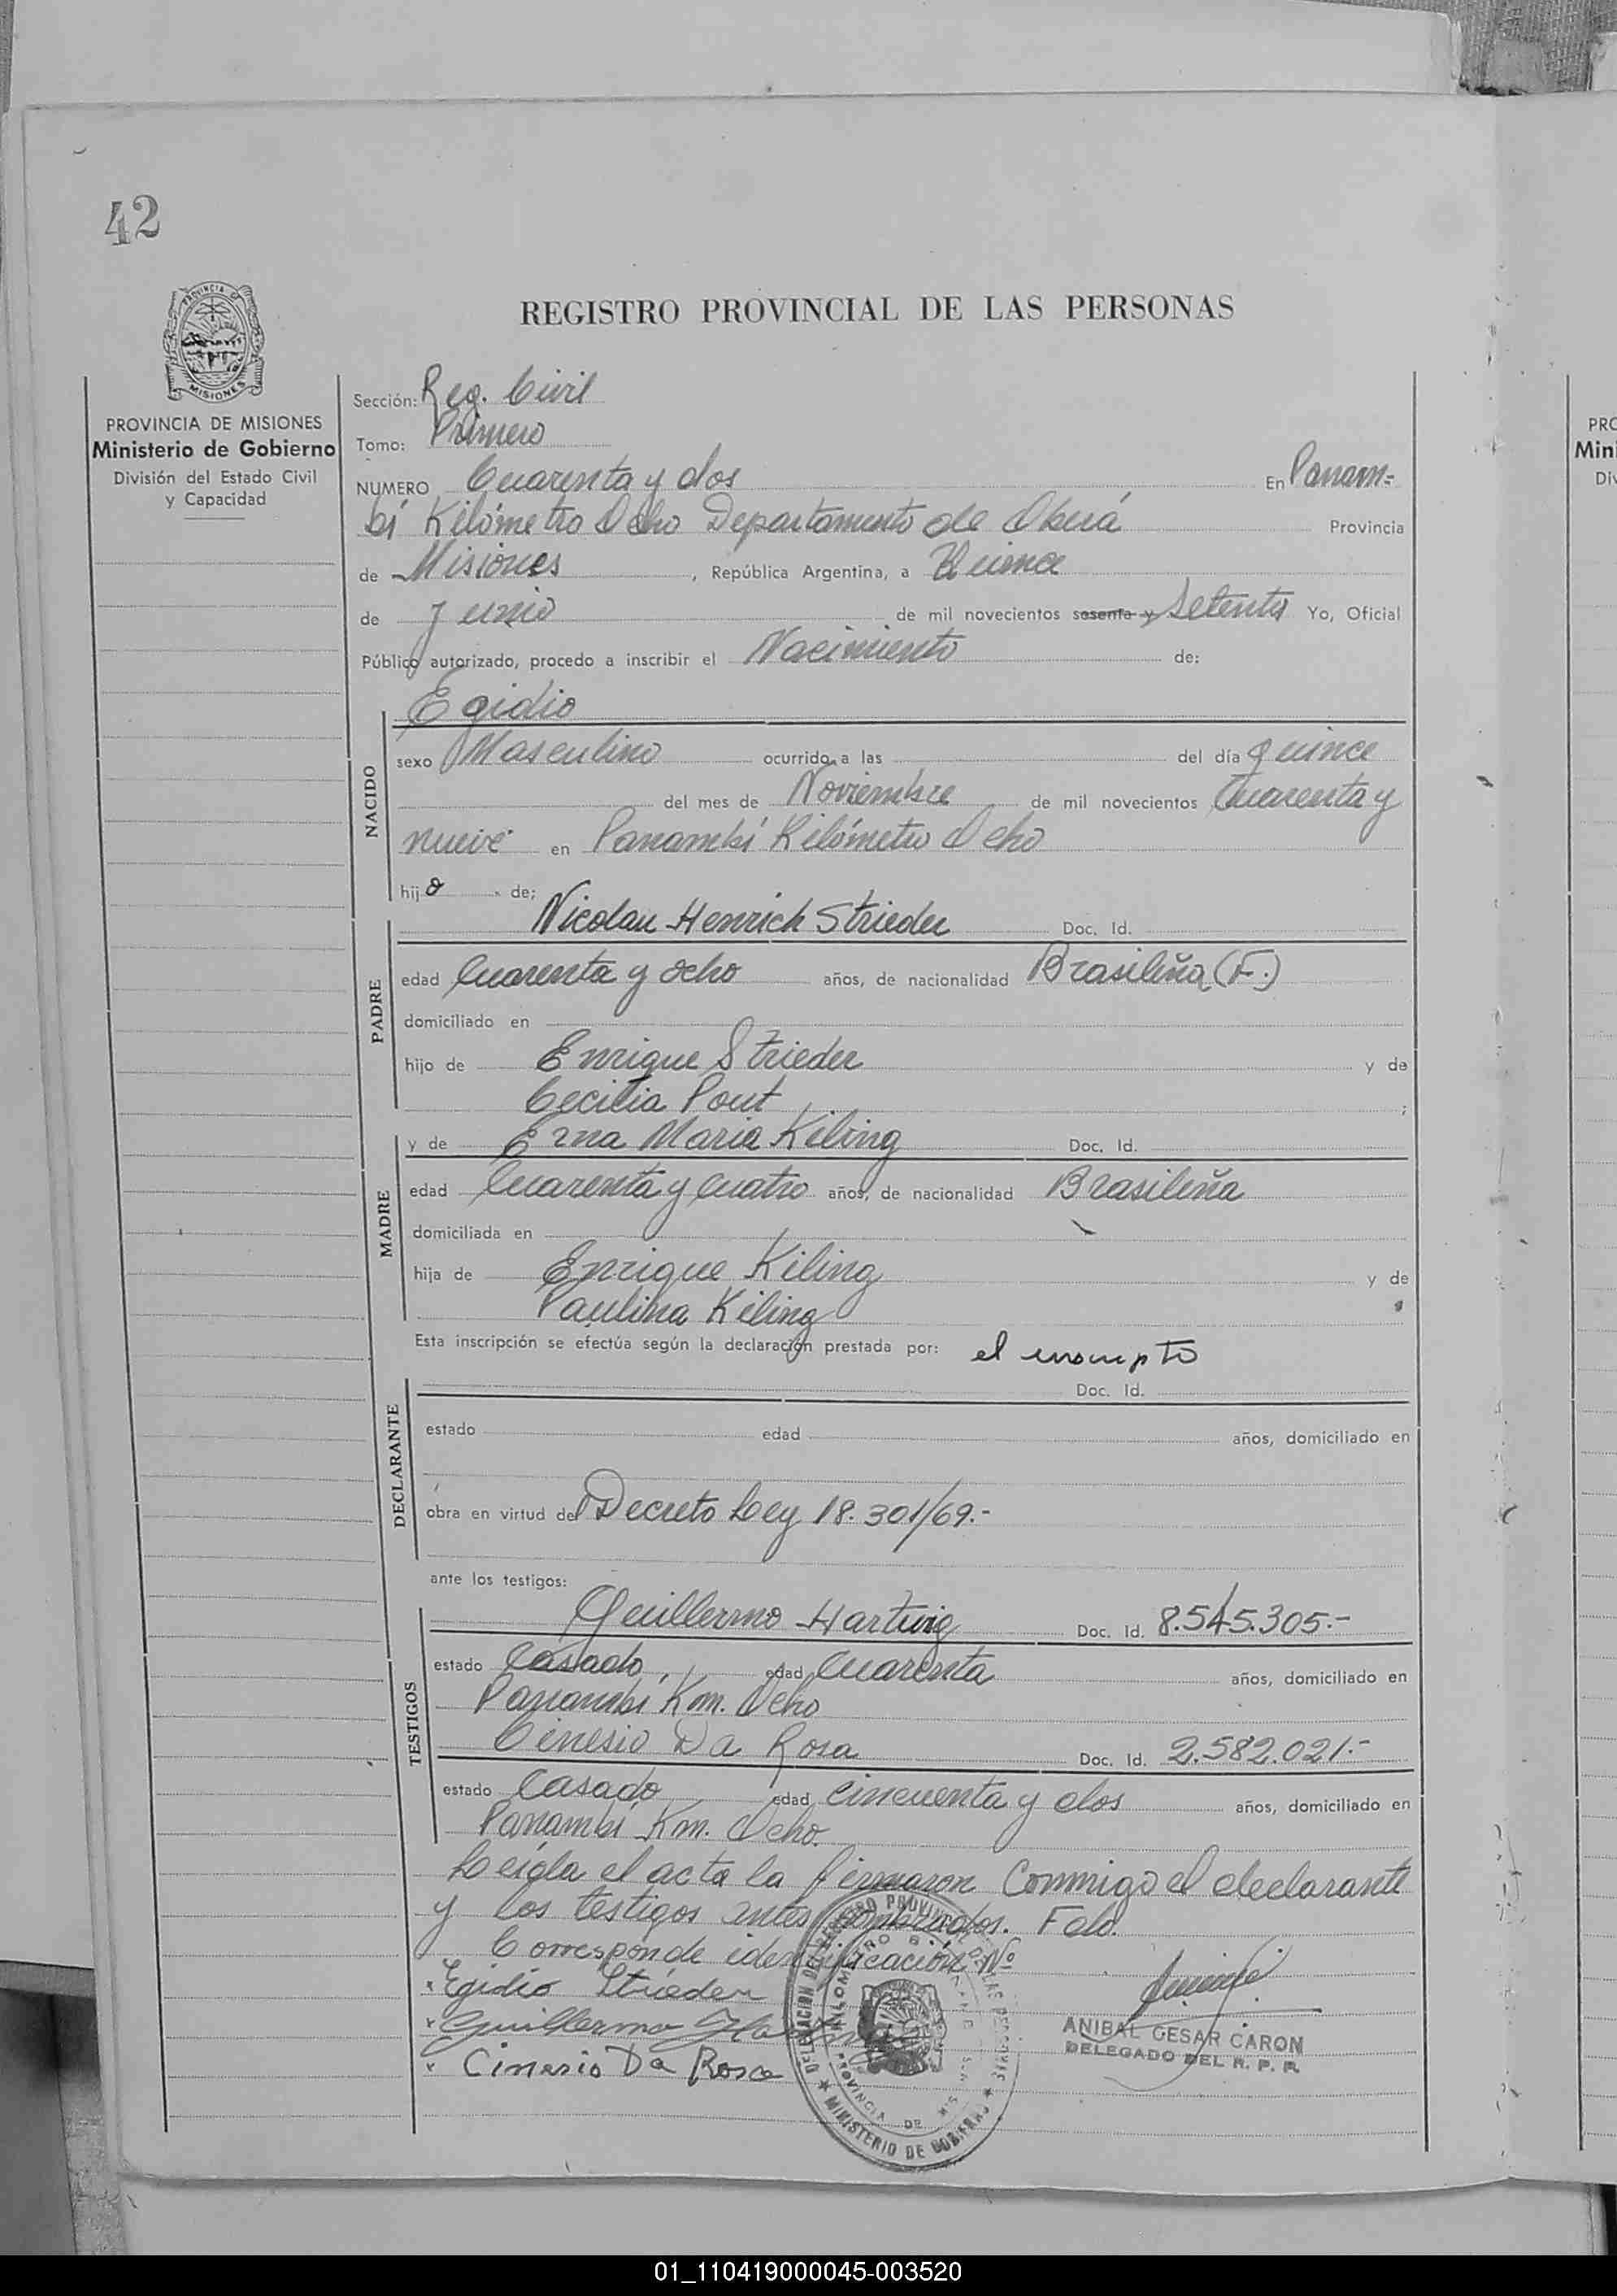 42
PROVINCIA DE
MISIONES
PROVINCIA DE MISIONES
Ministerio de Gobierno
División del Estado Civil
y Capacidad
REGISTRO PROVINCIAL DE LAS PERSONAS
Sección: Reg. Civil
Tomo: Primero
NUMERO Cuarenta y dos En Panam=
bí Kilómetro Ocho Departamento de Oberá Provincia
de Misiones, República Argentina, a Quince
de Junio de mil novecientos sesenta y Setenta Yo, Oficial
Público autorizado, procedo a inscribir el Nacimiento de:
NACIDO
Egidio
sexo Masculino ocurrido a las del día quince
del mes de Noviembre de mil novecientos Cuarenta y
nueve en Panambí Kilómetro Ocho
hijo de:
PADRE
Nicolau Henrich Strieder Doc. Id.
edad Cuarenta y ocho años, de nacionalidad Brasileña (F.)
domiciliado en
hijo de Enrique Strieder y de
Cecilia Pout ;
MADRE
y de Erna Maria Kiling Doc. Id.
edad Cuarenta y Cuatro años, de nacionalidad Brasileña
domiciliada en
hija de Enrique Kiling y de
Paulina Kiling
Esta inscripción se efectúa según la declaración prestada por: el inscripto
DECLARANTE
Doc. Id.
estado edad años, domiciliado en
obra en virtud del Decreto Ley 18.301/69.-
ante los testigos:
TESTIGOS
Guillermo Hartwig Doc. Id. 8.545.305.-
estado Casado, edad Cuarenta años, domiciliado en
Panambí Km. Ocho
Cinesio Da Rosa Doc. Id. 2.582.021.-
estado Casado edad cincuenta y dos años, domiciliado en
Panambí Km. Ocho.
Leída el acta la firmaron Conmigo el declarante
y los testigos antes nombrados. Fdo.
Corresponde identificación Nº
Egidio Strieder
Guillermo Hartwig
Cinesio Da Rosa
ANIBAL CESAR CARON
DELEGADO DEL R. P. P.
DELEGACION DEL REGISTRO PROVINCIAL DE LAS PERSONAS
KILOMETRO 8
PROVINCIA DE
MINISTERIO DE GOBIERNO
PRO
Mini
Div
01_110419000045-003520